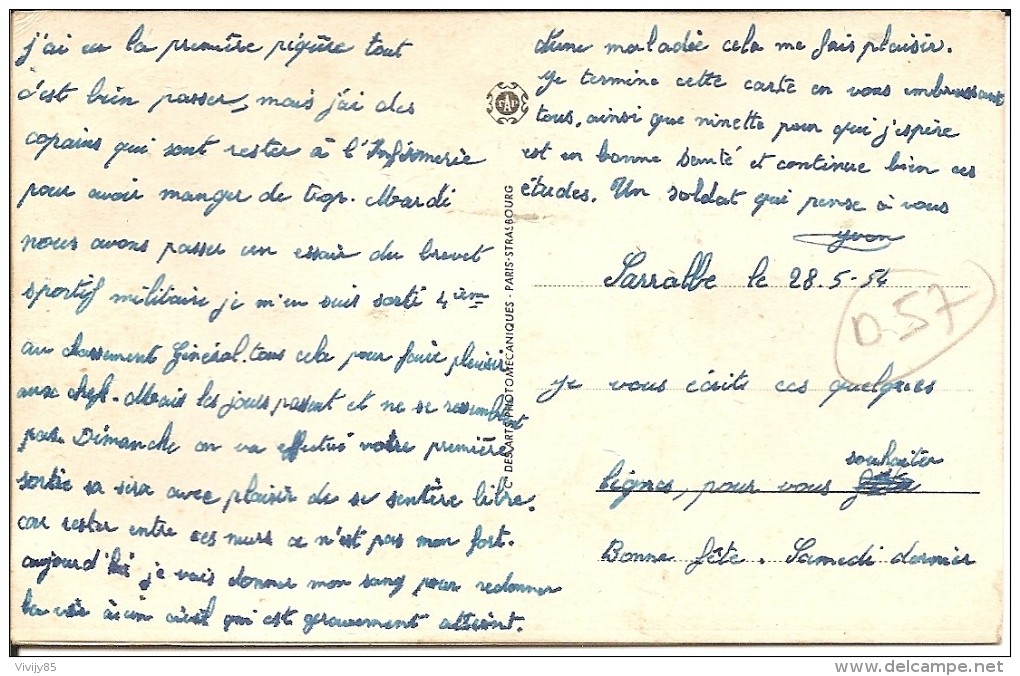 Sarralbe le 28.5-54
D-57
je vous écrits ces quelques
souhaiter
lignes, pour vous
Bonne fête. Samedi dernier
j'ai eu la première piqûre tout
c'est bien passer, mais j'ai des
copains qui sont rester à l'Infirmerie
pour avoir manger de trop. Mardi
nous avons passer un essair du brevet
sportif militaire je m'en suis sorti 4ième
au classement Général. tous cela pour faire plaisir
aux chefs. Mais les jours passent et ne se ressemblent
pas. Dimanche on va effectué votre première
sortie sa sera avec plaisir de se sentire libre.
car rester entre ces murs ce n'est pas mon fort.
aujourd'hui je vais donner mon sang pour redonner
la vie à un civil qui est gravement atteint.
d'une maladie cela me fais plaisir.
je termine cette carte en vous embrassant
tous, ainsi que ninette pour qui j'espère
est en bonne santé et continue bien ces
études. Un soldat qui pense à vous
yvon
CIE DES ARTS PHOTOMECANIQUES - PARIS-STRASBOURG
GAP
Vivijy85
www.delcampe.net